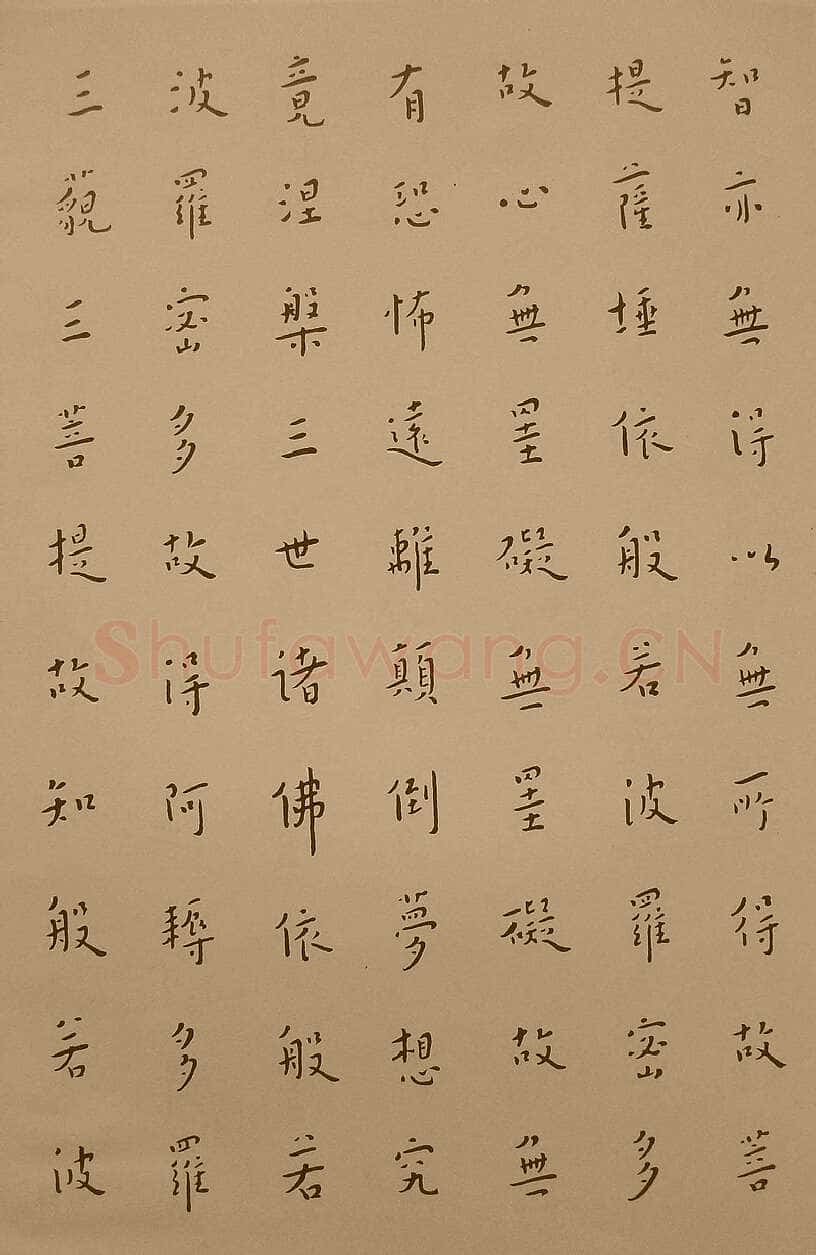 智亦無得以無所得故菩
提薩埵依般若波羅密多
故心無罣礙無罣礙故無
有恐怖遠離顛倒夢想究
竟涅槃三世諸佛依般若
波羅密多故得阿耨多羅
三藐三菩提故知般若波
Shufawang.CN